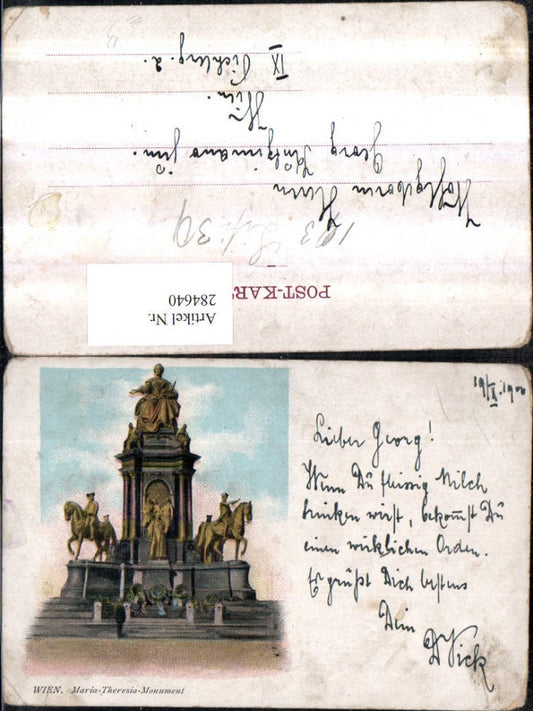 POST-KAR
Artikel Nr.
284640
Hochgeboren Herrn
Georg
jun.
Wien.
IX
2.
19/X. 1900
Lieber Georg!
Wenn Du fleissig Milch
trinken wirst, bekommst Du
einen wirklichen Orden.
Es grüßt Dich bestens
Dein
WIEN. Maria-Theresia-Monument